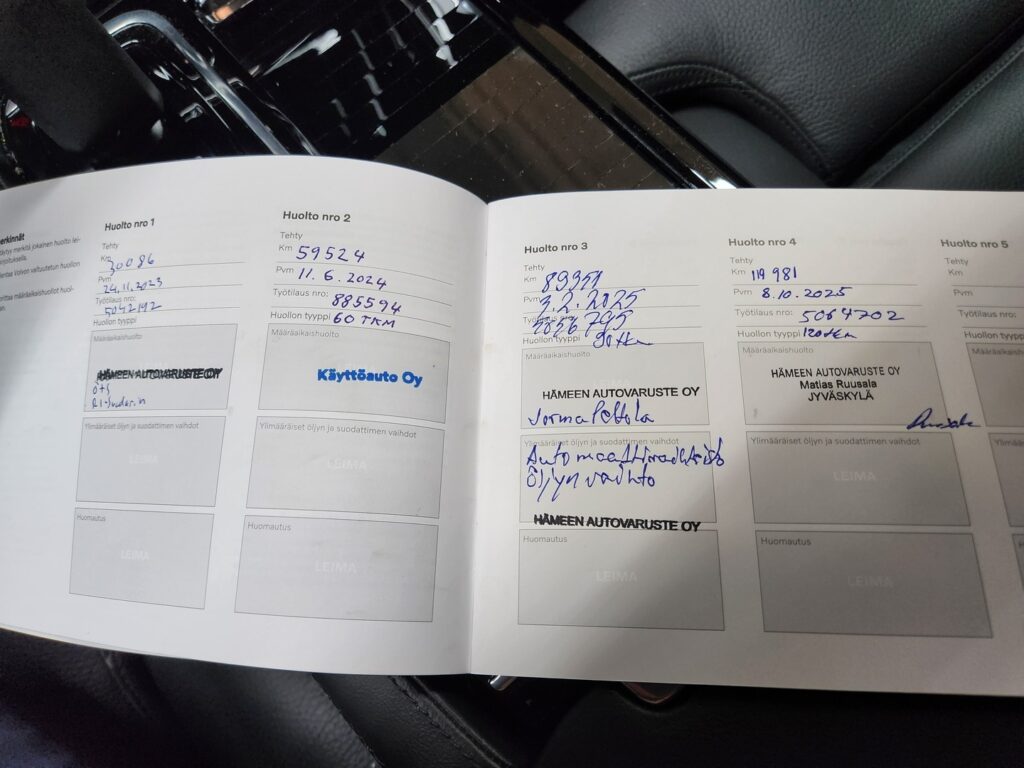 erkinnät
täytyy merkitä jokainen huolto lei-
Volvon valtuutetun huollon
määräaikaishuollot huol-
Huolto nro 1
Tehty
Km 30086
Pvm 24.11.2023
Työtilaus nro: 5042192
Huollon tyyppi
Määräaikaishuolto
HÄMEEN AUTOVARUSTE OY
Ylimääräiset öljyn ja suodattimen vaihdot
LEIMA
Huomautus
LEIMA
Huolto nro 2
Tehty
Km 59524
Pvm 11.6.2024
Työtilaus nro: 885594
Huollon tyyppi 60 TKM
Määräaikaishuolto
Käyttöauto Oy
Ylimääräiset öljyn ja suodattimen vaihdot
LEIMA
Huomautus
LEIMA
Huolto nro 3
Tehty
Km 89351
Pvm 3.2.2025
Työtilaus nro:
Huollon tyyppi 90tkm
Määräaikaishuolto
HÄMEEN AUTOVARUSTE OY
Jorma
Ylimääräiset öljyn ja suodattimen vaihdot
Öljyn vaihto
HÄMEEN AUTOVARUSTE OY
Huomautus
LEIMA
Huolto nro 4
Tehty
Km 119981
Pvm 8.10.2025
Työtilaus nro: 5064702
Huollon tyyppi 120tkm
Määräaikaishuolto
HÄMEEN AUTOVARUSTE OY
Matias Ruusala
JYVÄSKYLÄ
Ylimääräiset öljyn ja suodattimen vaihdot
LEIMA
Huomautus
LEIMA
Huolto nro 5
Tehty
Km
Pvm
Työtilaus nro:
Huollon tyyp
Määräaikaish
Ylimääräis
Huoma